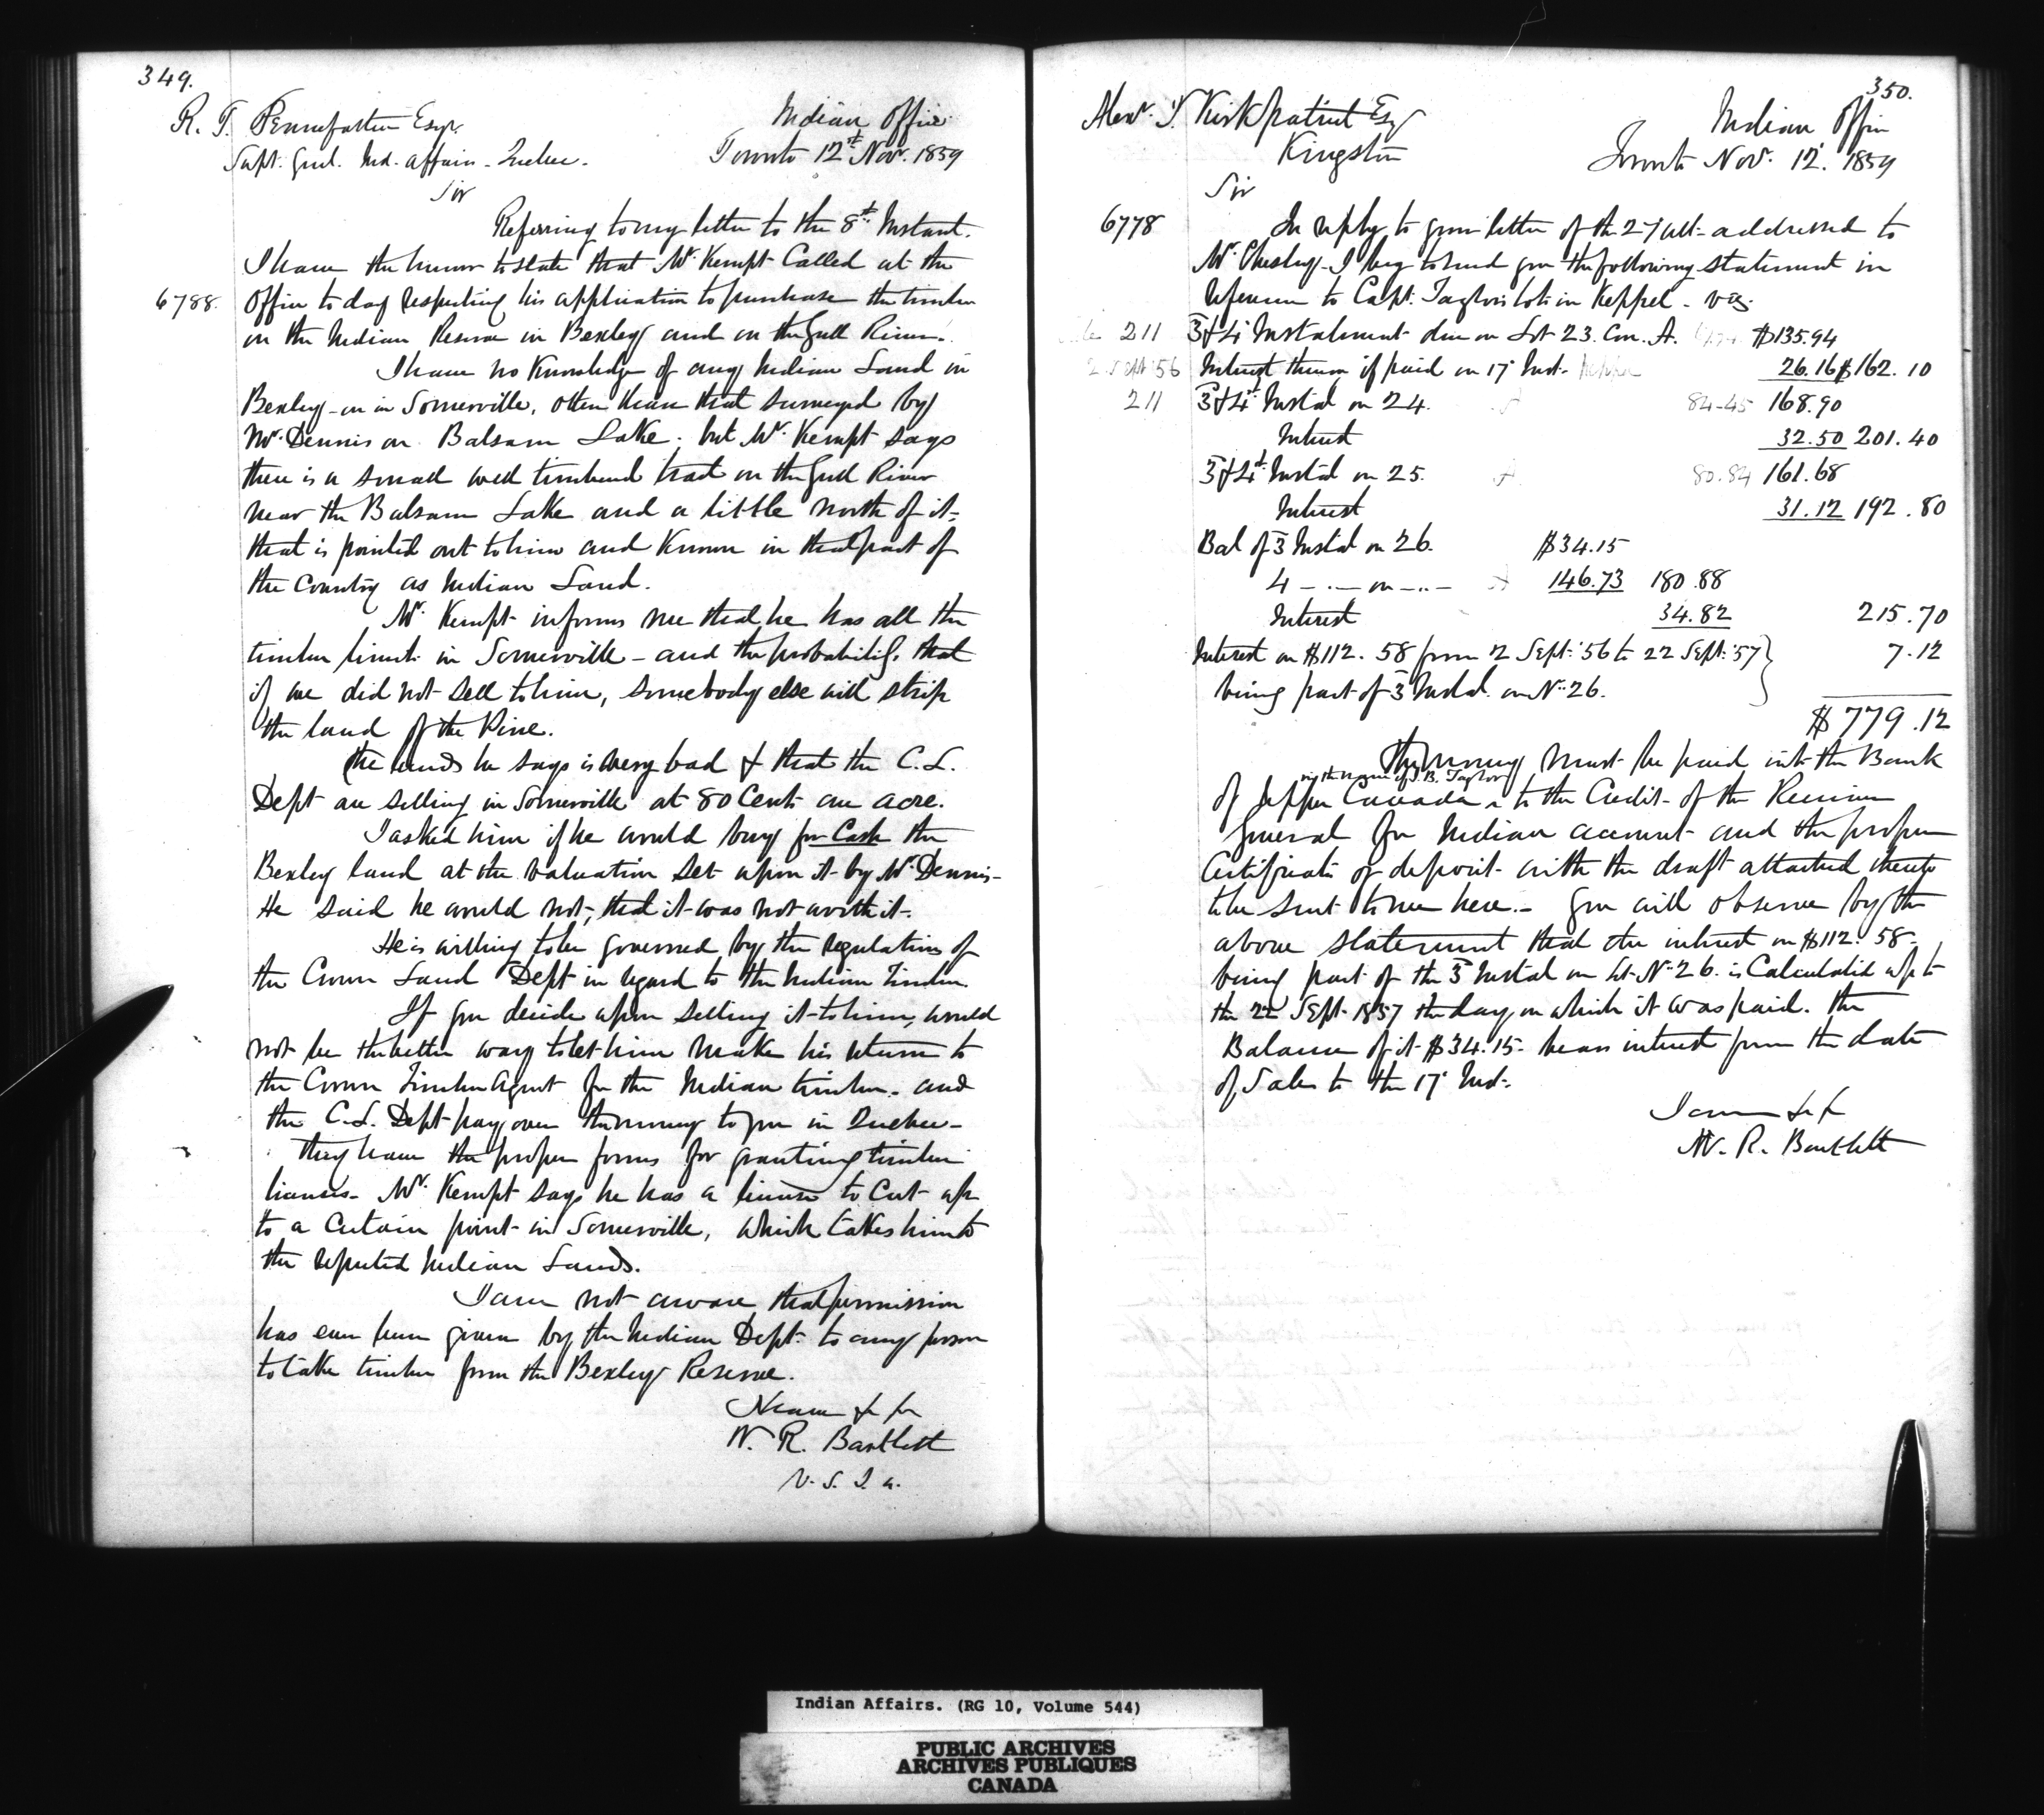 349.
R. T. Pennefather Esqr.
Supt. Genl. Ind. Affairs - Quebec.
Indian Office
Toronto 12th Nov. 1859
Sir
Referring to my letter to the 8th Instant.
I have the honor to state that Mr. Kempt Called at the
6788. Office to day respecting his application to purchase the timber
on the Indian Reserve in Bexley and on the Gull River.
I have no Knowledge of any Indian Land in
Bexley - or in Somerville, other than that surveyed by
Mr. Dennis on Balsam Lake; but Mr. Kempt says
there is a small well timbered tract on the Gull River
near the Balsam Lake and a little north of it -
that is pointed out to him and Known in that part of
the Country as Indian Land.
Mr. Kempt informs me that he has all the
timber limits in Somerville - and the probability, that
if we did not sell to him, somebody else will strip
the land of the Pine.
The lands he says is very bad & that the C. L.
Dept are selling in Somerville at 80 Cents an acre.
I asked him if he would buy for Cash the
Bexley land at the valuation set upon it by Mr. Dennis -
He said he would not, that it was not worth it.
He is willing to be governed by the regulations of
the Crown Land Dept in regard to the Indian Timber.
If you decide upon selling it to him, would
not be the better way to let him make his return to
the Crown Timber Agent for the Indian timber - and
the C. L. Dept pay over the money to you in Quebec -
they have the proper forms for granting timber
licenses - Mr. Kempt says he has a license to Cut up
to a Certain point in Somerville, which takes him to
the reputed Indian Lands.
I am not aware that permission
has ever been given by the Indian Dept. to any person
to take timber from the Bexley Reserve.
I have &c &c
W. R. Bartlett
V. S. I. a.
350.
Alexr. T. Kirkpatrick Esq
Kingston
Indian Office
Toronto Nov. 12. 1859
Sir
6778 In reply to your letter of the 27 ult. addressed to
Mr. Chesley - I beg to send you the following statement in
reference to Capt. Taylors lots in Keppel - viz.
211 3 & 4 Instalment due on Lot 23. Con. A. $135.94
2 Sept '56 Interest thereon if paid on 17 Inst. 26.16 $162.10
211 3 & 4 Instal on 24. 84-45 168.90
Interest 32.50 201.40
3 & 4 Instal on 25. 80.84 161.68
Interest 31.12 192.80
Bal of 3 Instal on 26. $34.15
4 - . - on - .. - 146.73 180.88
Interest 34.82 215.70
Interest on $112.58 from 2 Sept. '56 to 22 Sept. '57 } 7.12
being part of 3 Instal. on No. 26.
$779.12
The money must be paid into the Bank
in the name of J. B. Taylor
of Upper Canada to the Credit of the Receiver
General for Indian account and the proper
Certificate of deposit with the draft attached thereto
to be sent to me here. - You will observe by the
above statement that the interest on $112.58 -
being part of the 3 Instal on Lot No. 26. is Calculated up to
the 22 Sept. 1857 the day on which it was paid. The
Balance of it $34.15 - bears interest from the date
of Sale to the 17 Inst.
I am &c &c
W. R. Bartlett
Indian Affairs. (RG 10, Volume 544)
PUBLIC ARCHIVES
ARCHIVES PUBLIQUES
CANADA